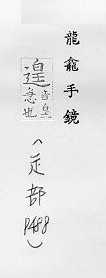 龍龕手鏡
遑
音皇
急也
(辵部
P488)